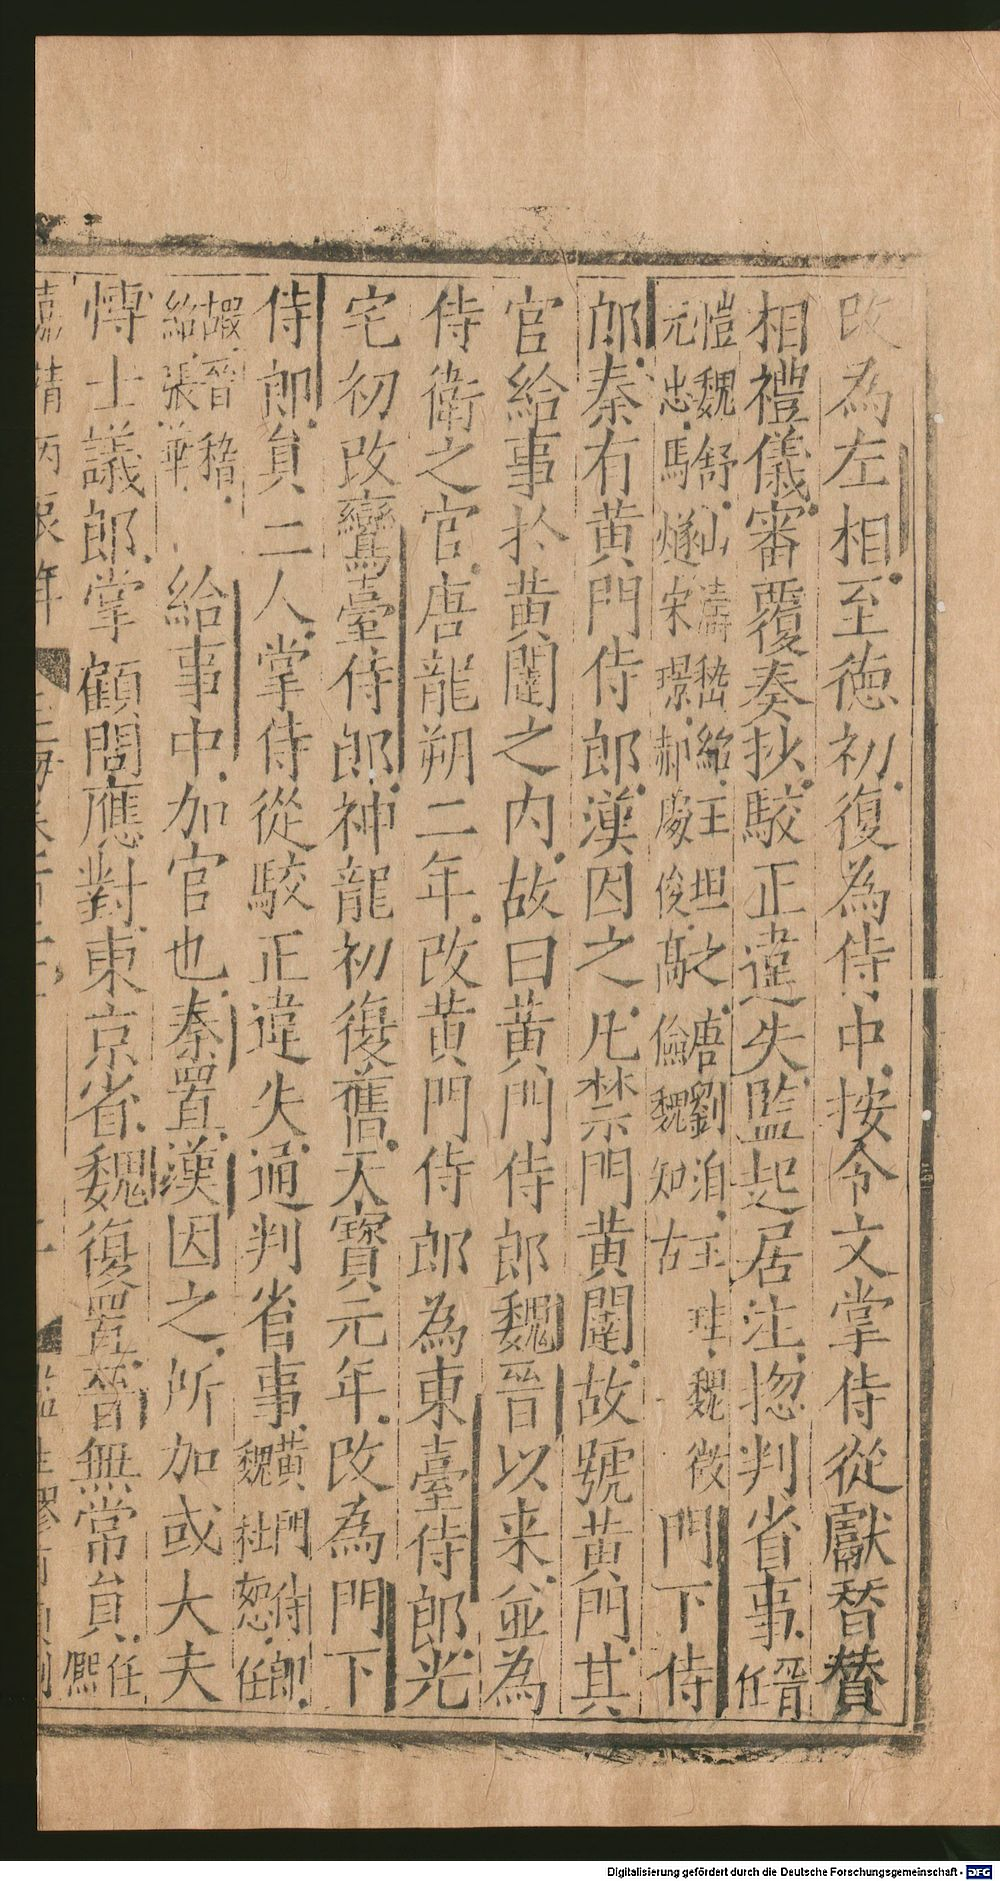 改為左相至徳初復為侍中按令文掌侍從獻替賛
相禮儀審覆奏抄駮正違失監起居注揔判省事晉任
愷魏舒山濤嵇紹王坦之唐劉洎王珪魏徴
元忠馬燧宋璟郝處俊髙儉魏知古
門下侍
郎秦有黄門侍郎漢因之凡禁門黄闥故號黄門其
官給事扵黄闥之内故曰黄門侍郎魏晉以来並為
侍衛之官唐龍朔二年改黄門侍郎為東臺侍郎光
宅初改鸞臺侍郎神龍初復舊天寳元年改為門下
侍郎貟二人掌侍從駮正違失通判省事黄門侍郎
魏杜恕任
嘏晉嵇
紹張華
給事中加官也秦置漢因之所加或大夫
愽士議郎掌顧問應對東京省魏復置晉無常貟任
熈
嘉靖丙辰年
Digitalisierung gefördert durch die Deutsche Forschungsgemeinschaft - DFG